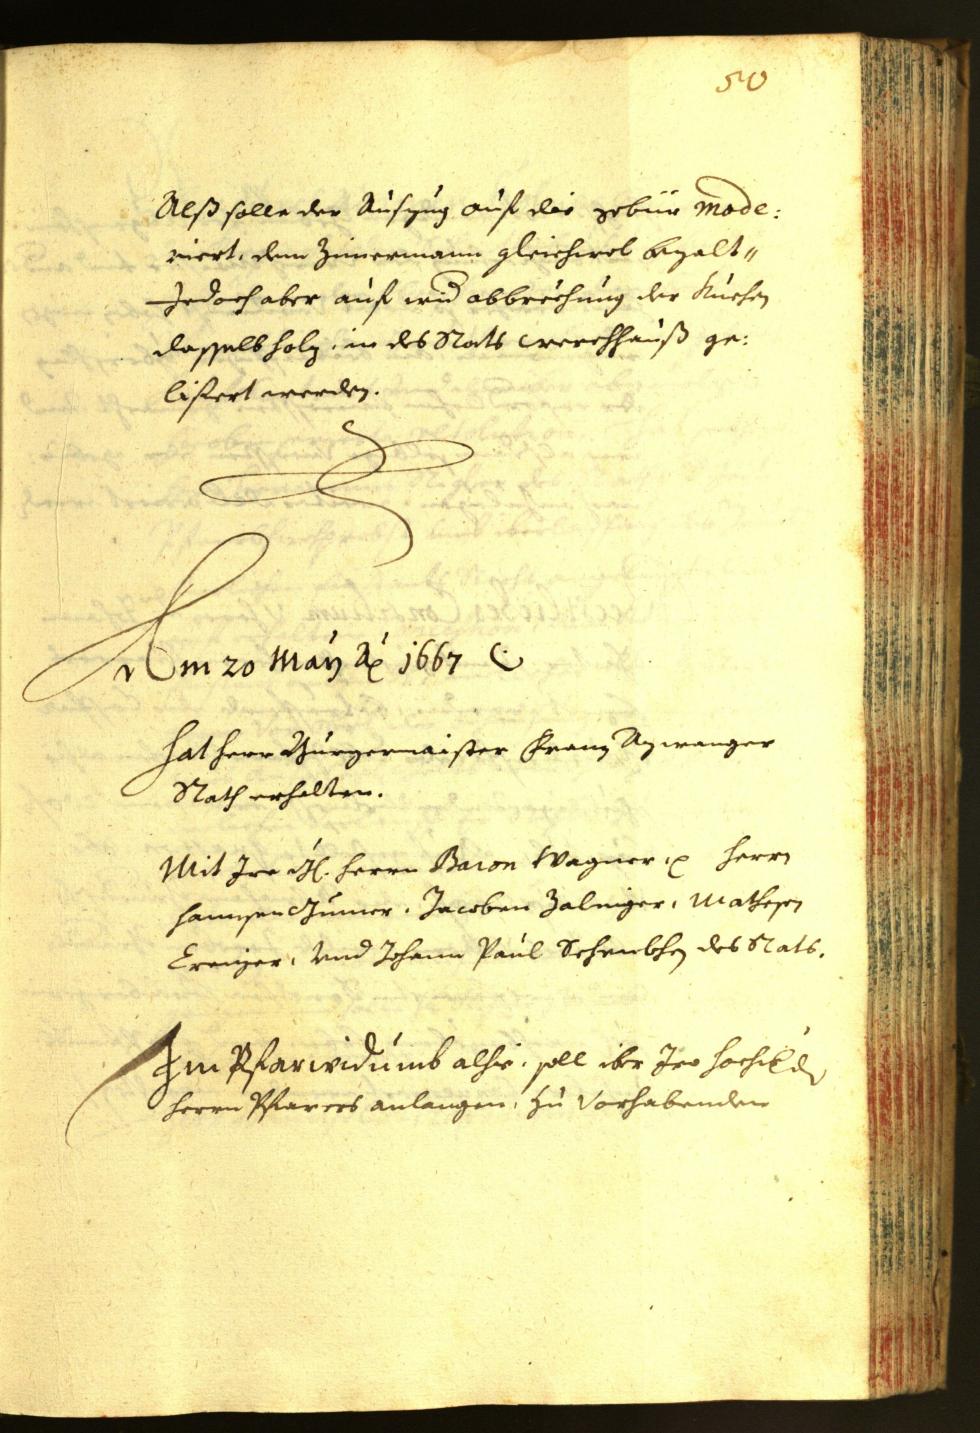 50
Alß solle der Auszug auf die gebür mode:
riert, dem Zimermann gleichwol bezalt "
Jedoch aber auf wid abbrechung der Kuchen
dasselb holz, in des Rats werchhauß ge:
lifert werden.
Am 20 May Ao 1667
hat herr Burgermaister Franz Azwanger
Rath erhalten.
Mit Ire H. herrn Baron Wagner herrn
hannsen Jacoben Zalinger, Mathesen
Und Johann Paul des Rats.
Im Pfarrwidumb alhie, soll iber Iro
herrn Pfarrers anlangen, zu Vorhabenden